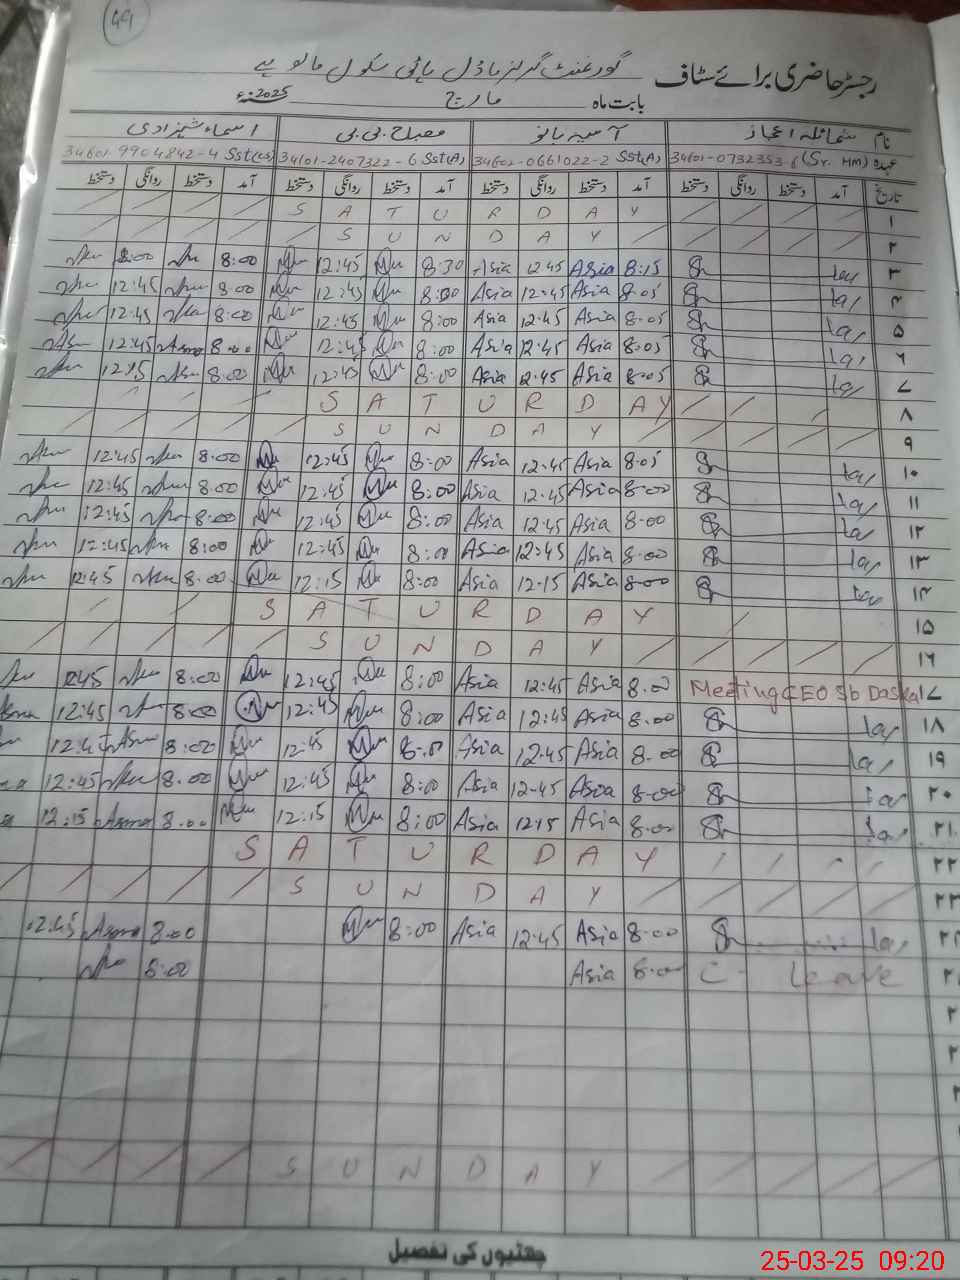 49
رجسٹر حاضری برائے سٹاف گورنمنٹ گرلز ماڈل ہائی سکول مالو پے
بابت ماہ مارچ 2025ء
نام شمائلہ اعجاز آسیہ بانو مصباح بی بی اسماء شہزادی
عہدہ 34601-0732353-6 (Sr. HM) 34602-0661022-2 Sst(A) 34601-2407322-6 Sst(A) 34601-9904842-4 Sst(cs)
تاریخ آمد دستخط روانگی دستخط آمد دستخط روانگی دستخط آمد دستخط روانگی دستخط آمد دستخط روانگی دستخط
۱ SATURDAY
۲ SUNDAY
۳ 8:15 Asia 12:45 Asia 8:30 12:45 8:00
۴ 8.05 Asia 12:45 Asia 8:00 12:45 8:00 12:45
۵ 8.05 Asia 12:45 Asia 8:00 12:45 8:00 12:45
۶ 8.05 Asia 12:45 Asia 8:00 12:45 8.00 Asma 12:45
۷ 8.05 Asia 12.45 Asia 8:00 12:45 8.00 12:45
۸ SATURDAY
۹ SUNDAY
۱۰ 8.05 Asia 12:45 Asia 8:00 12:45 8.00 12:45
۱۱ 8.00 Asia 12:45 Asia 8:00 12:45 8.00 12:45
۱۲ 8.00 Asia 12:45 Asia 8:00 12:45 8:00 12:45
۱۳ 8.00 Asia 12:45 Asia 8:00 12:45 8:00 12:45
۱۴ 8.00 Asia 12.15 Asia 8:00 12:15 8.00 12:45
۱۵ SATURDAY
۱۶ SUNDAY
۱۷ Meeting CEO Sb Daska 8.00 Asia 12:45 Asia 8:00 12:45 8:00 12:45
۱۸ 8.00 Asia 12:45 Asia 8:00 12:45 8:00 12:45
۱۹ 8.00 Asia 12.45 Asia 8:00 12:45 8:00 Asma 12:45
۲۰ 8.00 Asia 12-45 Asia 8:00 12:45 8.00 12:45
۲۱ 8.00 Asia 12:15 Asia 8:00 12:15 8.00 Asma 12:15
۲۲ SATURDAY
۲۳ SUNDAY
8.00 Asia 12:45 Asia 8:00 8.00 Asma 12:45
C - Leave 8.00 Asia 8:00
SUNDAY
چھٹیوں کی تفصیل
25-03-25 09:20